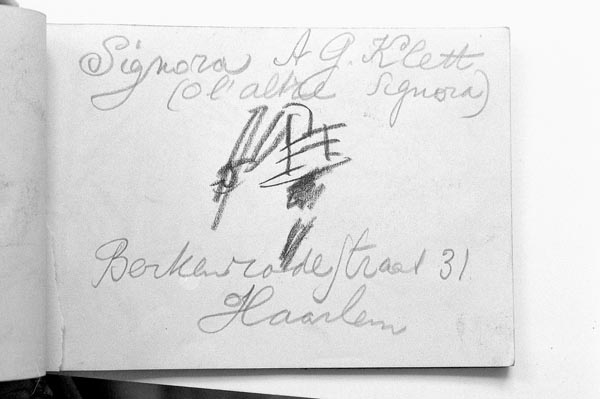 Signora A G. Klett.
(o l'altre Signora)
Berkenrodestraat 31
Haarlem